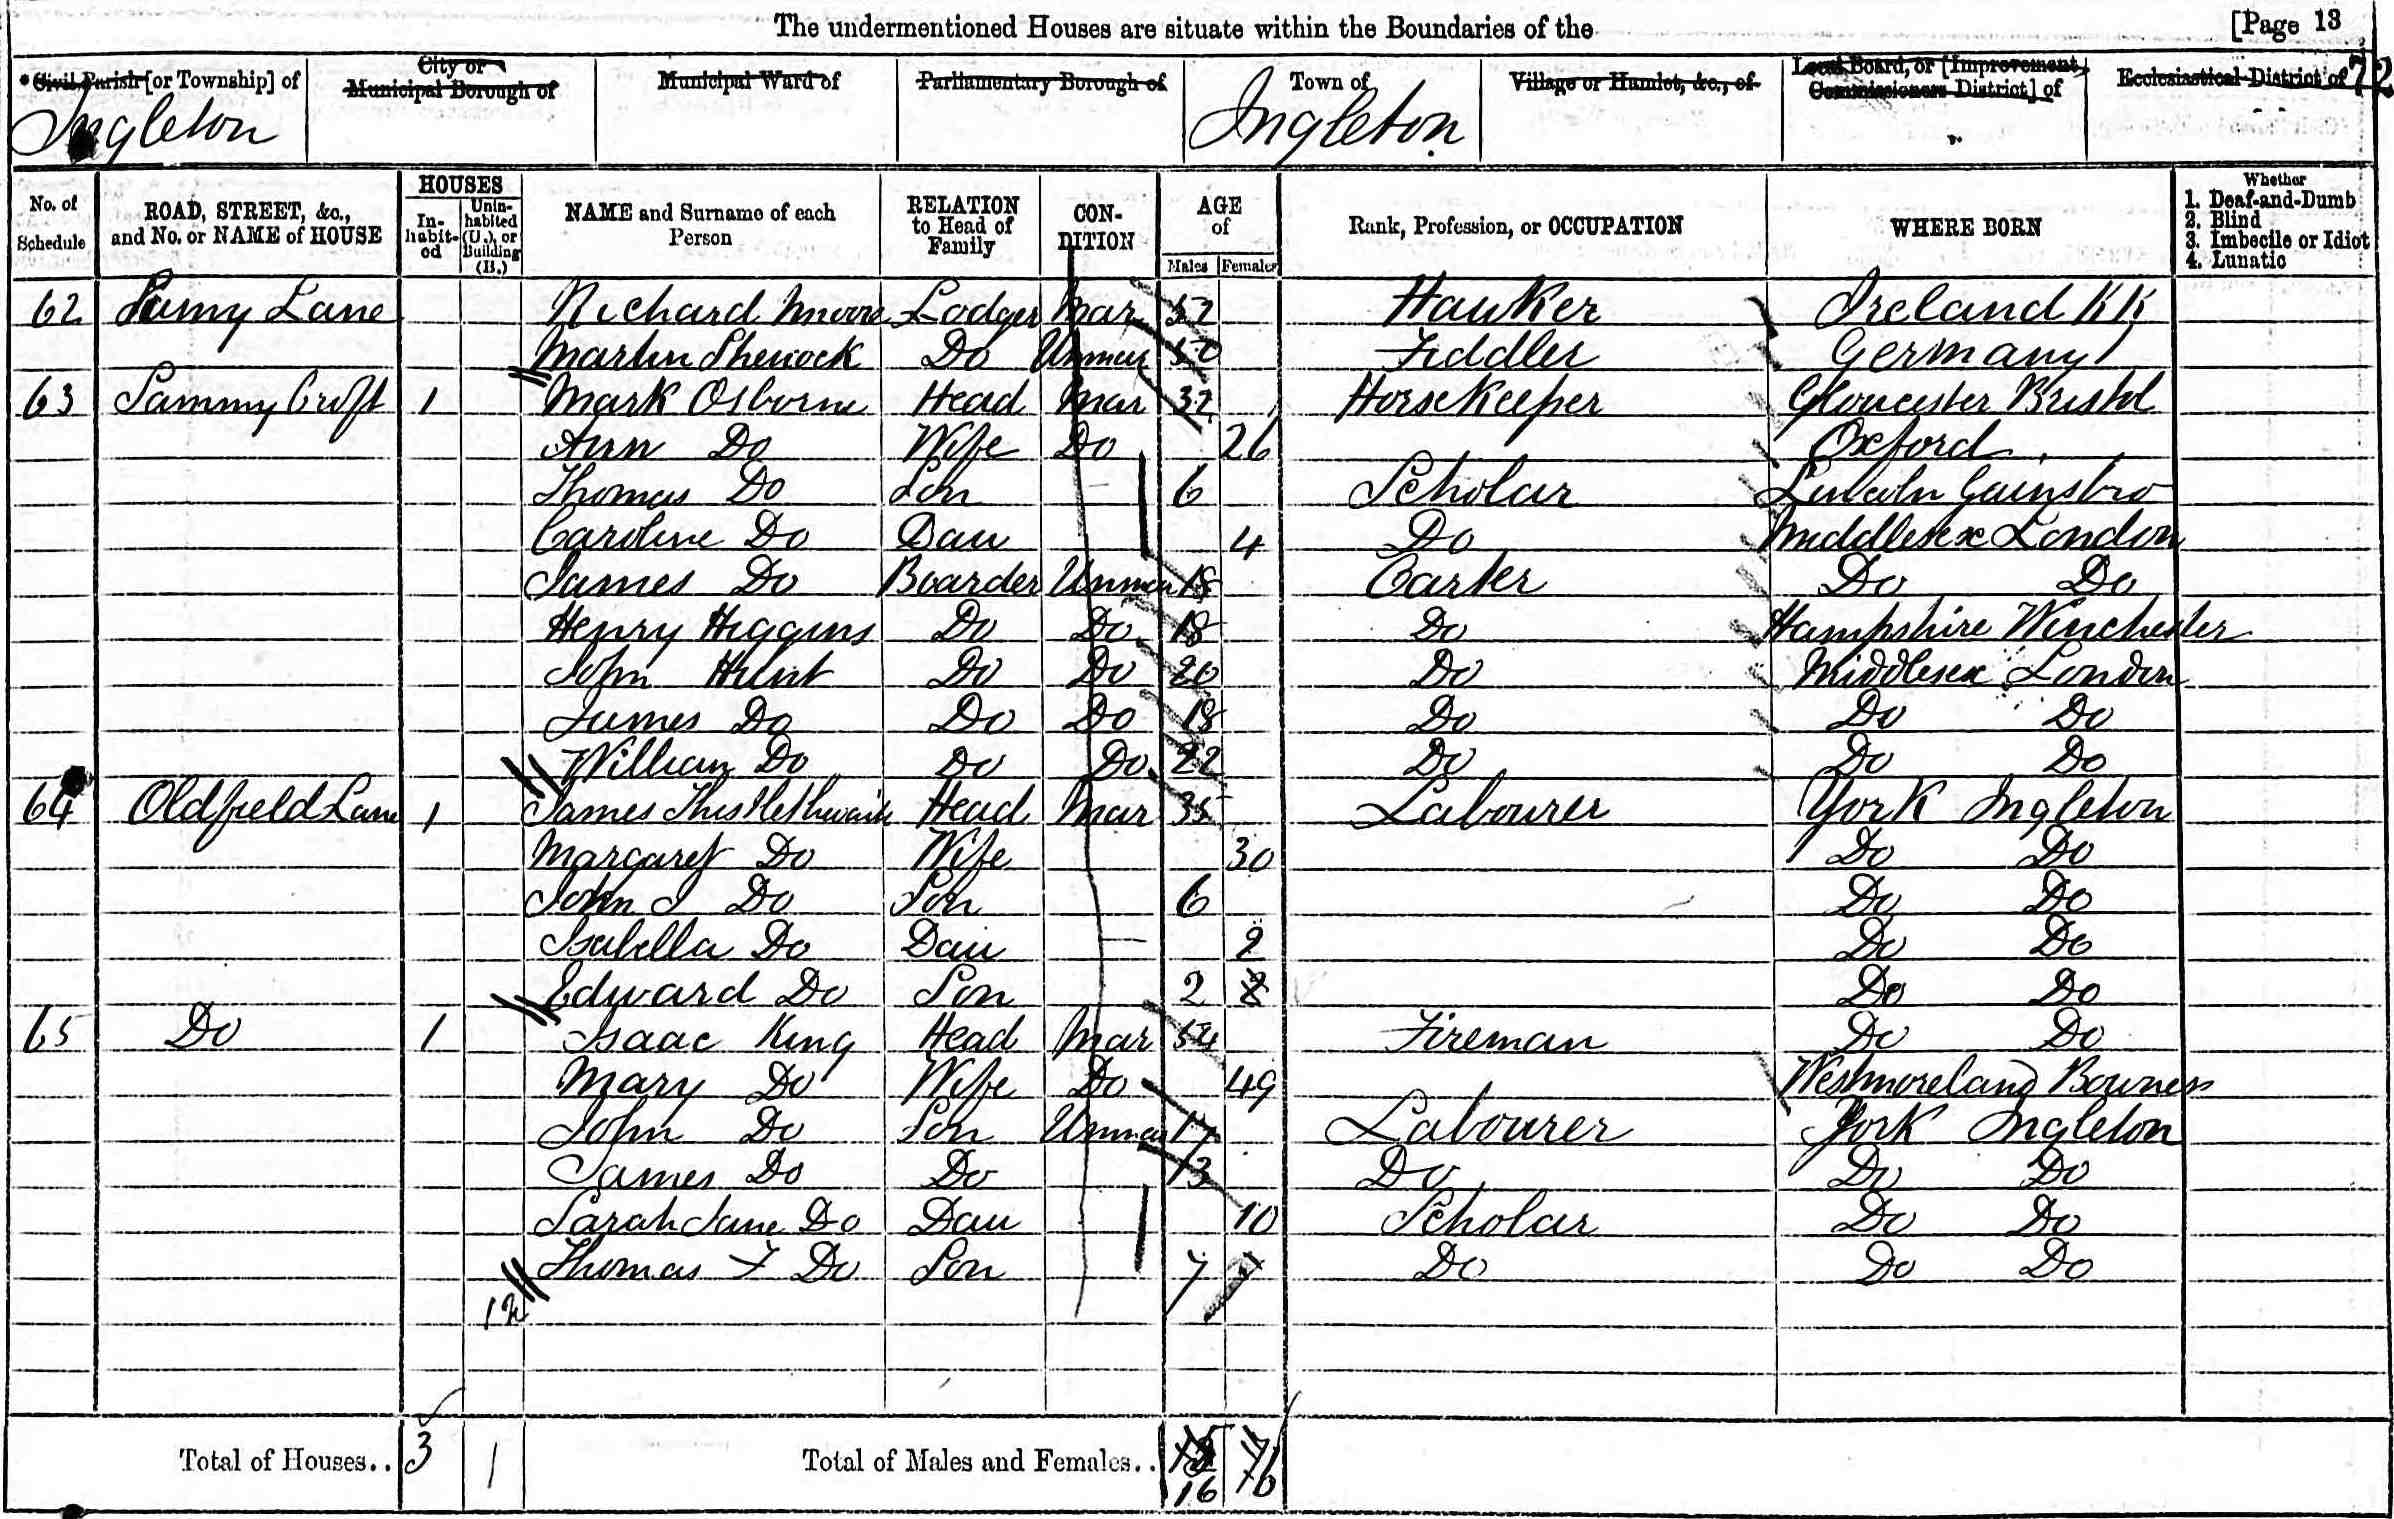 The undermentioned Houses are situate within the Boundaries of the [Page 13
72
* Civil Parish [or Township] of | City or Municipal Borough of | Municipal Ward of | Parliamentary Borough of | Town of | Village or Hamlet, &c., of | Local Board, or [Improvement Commissioners District] of | Ecclesiastical District of
Ingleton | Ingleton
No. of Schedule | ROAD, STREET, &c., and No. or NAME of HOUSE | HOUSES In-habit-ed | Unin-habited (U.), or Building (B.) | NAME and Surname of each Person | RELATION to Head of Family | CON-DITION | AGE of Males | Females | Rank, Profession, or OCCUPATION | WHERE BORN | Whether 1. Deaf-and-Dumb 2. Blind 3. Imbecile or Idiot 4. Lunatic
62 Lane Richard Moore Lodger Mar Hawker Ireland
Martin Do Unmar Fiddler Germany
63 Sammy Croft 1 Mark Osborne Head Mar 32 Horsekeeper Gloucester Bristol
Ann Do Wife Do 26 Oxford
Thomas Do Son 6 Scholar Lincoln Gainsbro
Caroline Do Dau 4 Do Middlesex London
James Do Boarder Unmar 18 Carter Do Do
Henry Higgins Do Do 18 Do Hampshire Winchester
John Hunt Do Do 20 Do Middlesex London
James Do Do Do 18 Do Do Do
William Do Do Do 22 Do Do Do
64 Oldfield Lane 1 James Thistlethwaite Head Mar 35 Labourer York Ingleton
Margaret Do Wife 30 Do Do
John J Do Son 6 Do Do
Isabella Do Dau 2 Do Do
Edward Do Son 2 Do Do
65 Do 1 Isaac King Head Mar 54 Fireman Do Do
Mary Do Wife Do 49 Westmoreland Bowness
John Do Son Unmar 17 Labourer York Ingleton
James Do Do 13 Do Do Do
Sarah Jane Do Dau 10 Scholar Do Do
Thomas F Do Son 7 Do Do Do
Total of Houses.. 3 1 Total of Males and Females.. 16 6